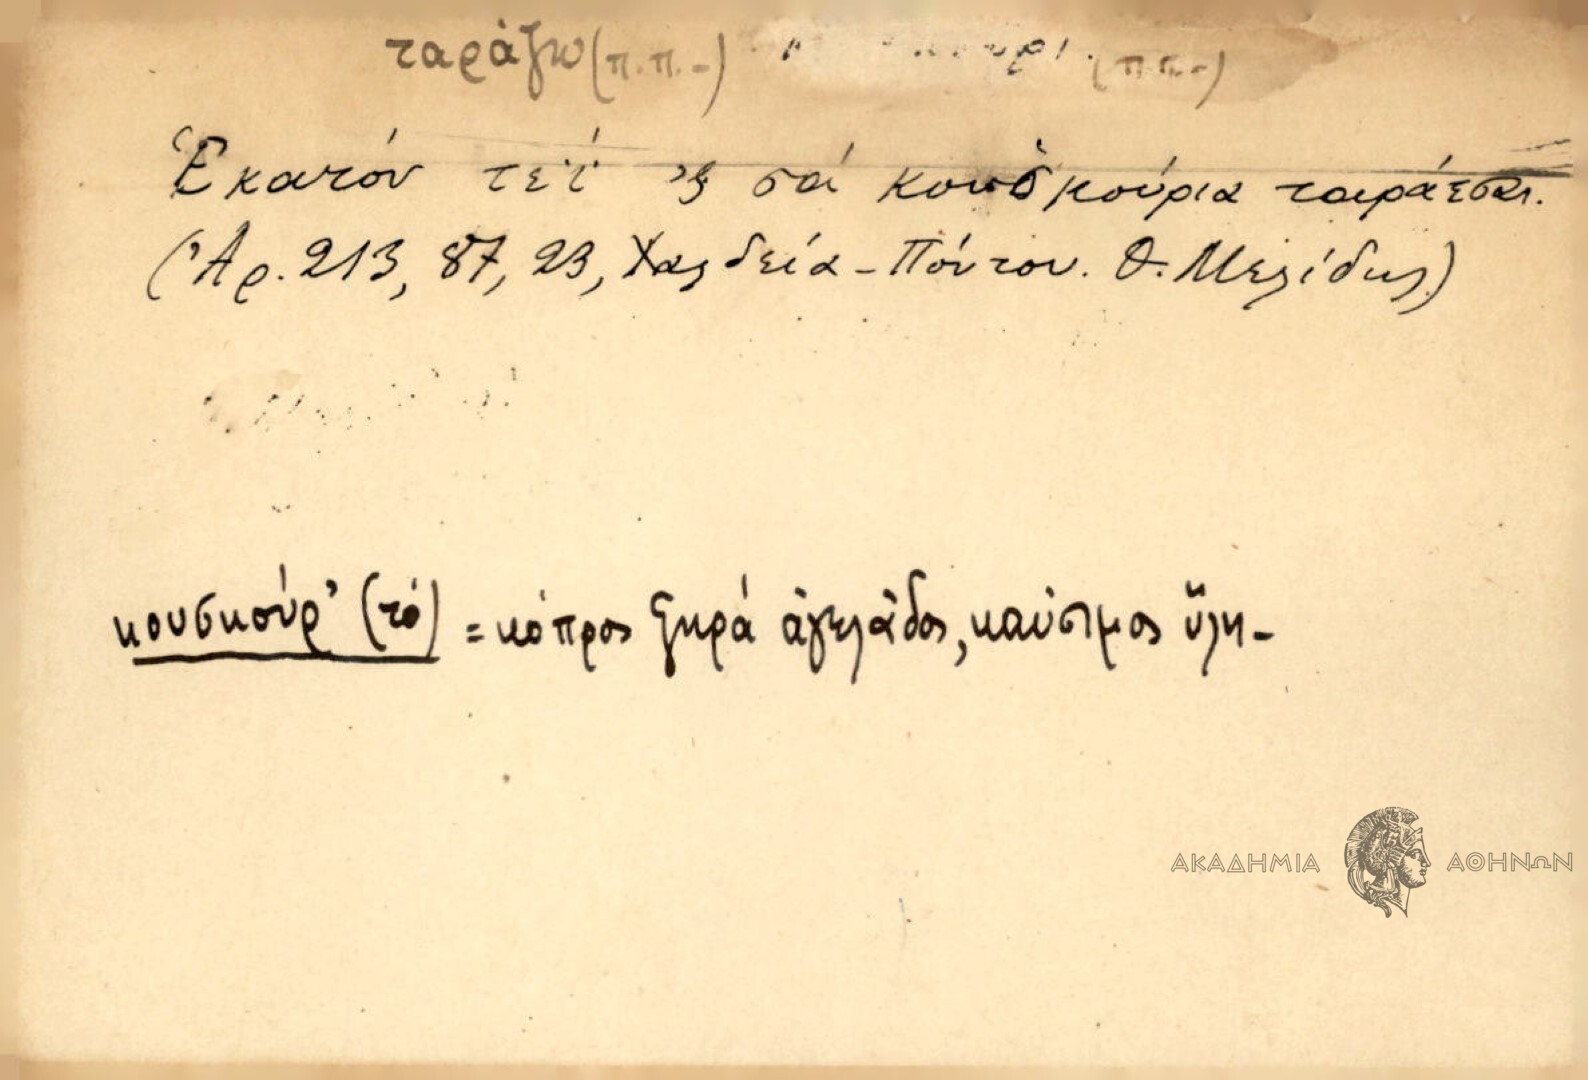 ταράζω (π.π.-) (π.π.-)
Ἑκατόν τεϊ 'ς σά κουσκούρια ταράεσαι.
(Ἀρ. 213, 87, 23, Χαλδεία - Πόντου. Θ. Μελίδης)
κουσκούρ' (τό) = κόπρος ξηρά ἀγελάδος, καύσιμος ὕλη-
ΑΚΑΔΗΜΙΑ ΑΘΗΝΩΝ